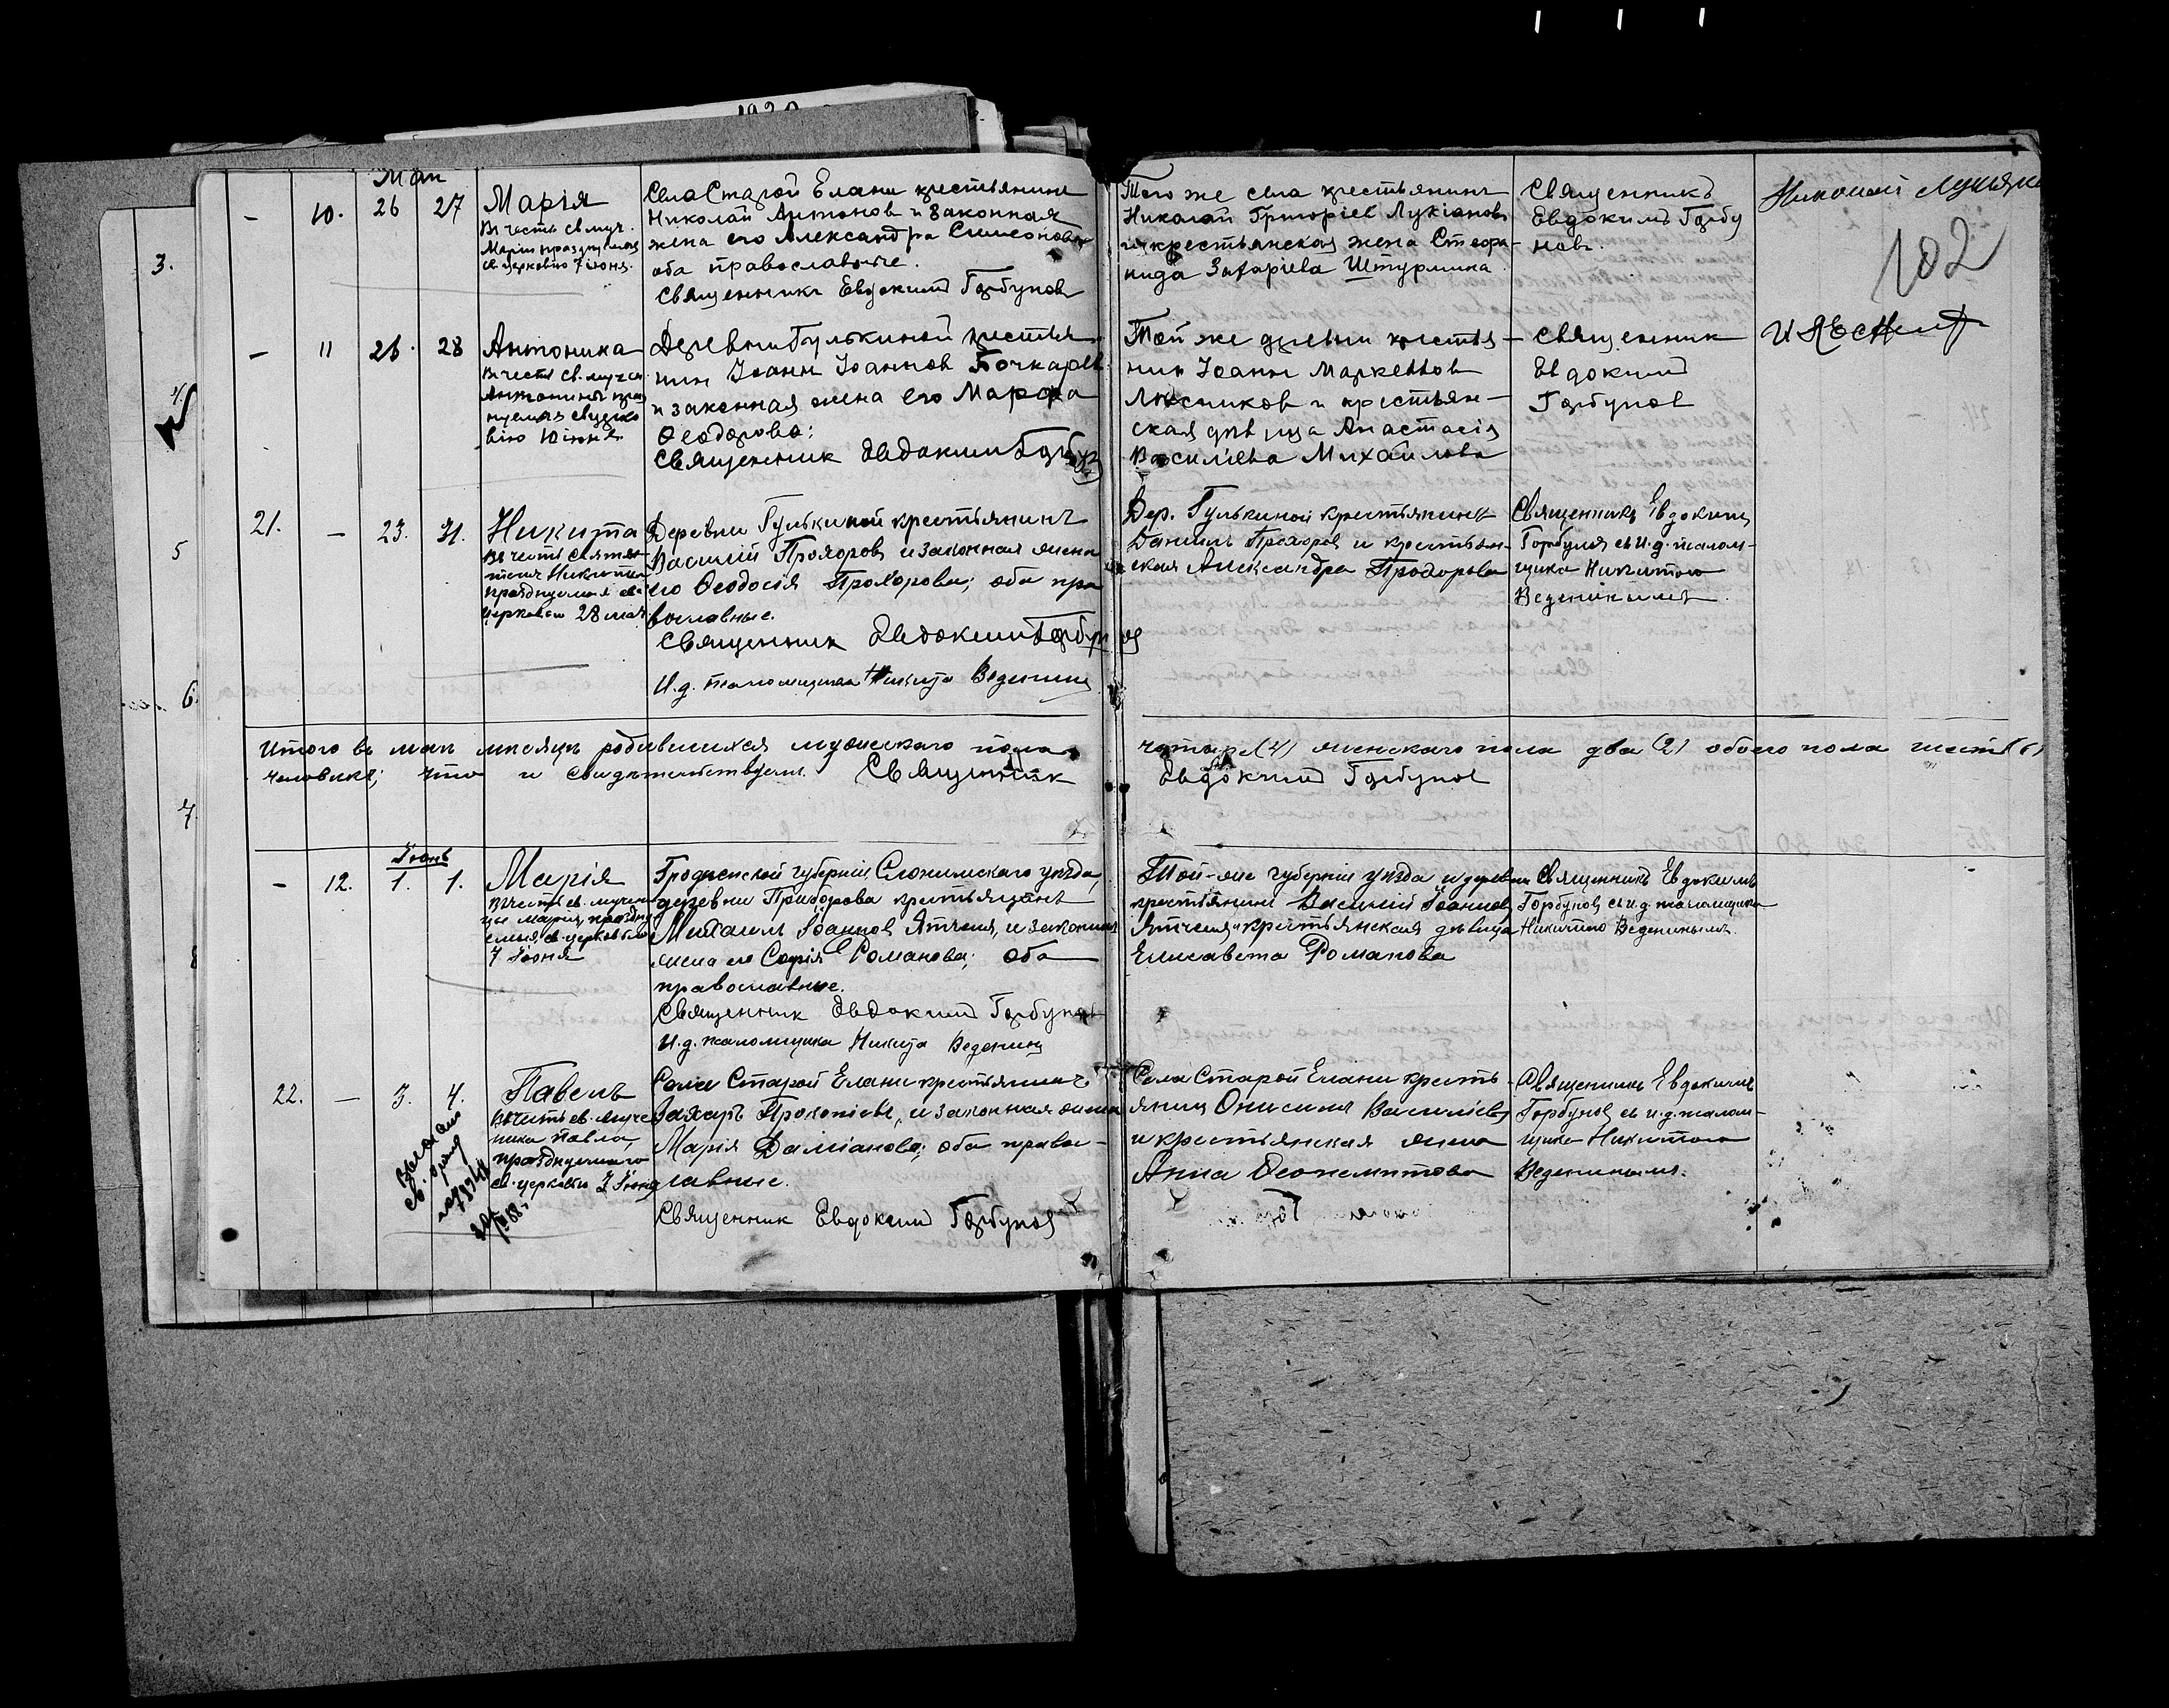 1920
Мая
- 10. 26 27 Марія
Въ честь св муч.
Маріи празднуемая
св церковію 7 іюня.
Села Старой Елани крестьянинъ
Николай Антонов и законная
жена его Александра Симеонова
оба православные.
Священникъ Евдокимъ Горбунов
Того же села крестьянинъ
Николай Григоріев Лукіановъ
и крестьянская жена Стефа-
нида Захаріева Штурмина
Священникъ
Евдокимъ Горбу
новъ.
Николай
102
- 11 26 28 Антонина
Въ честь св. мучен
Антонины праз
нуемая св церко
вію 10 іюня
Деревни Гулькиной крестья
нин Іоанн Іоаннов Бочкарев
и законная жена его Марфа
Ѳеодорова;
Священник Евдоким Горбун
Той же деревни крестья-
нин Іоанн Маркеллов
Лѣсников и крестьян-
ская дѣвица Анастасія
Василіева Михайлова
Священник
Евдоким
Горбунов
И Лесник
21. - 23. 31. Никита
Въ честь святи-
теля Никиты
празднуемая св.
церковью 28 мая
Деревни Гулькиной крестьянинъ
Василий Прохоровъ и законная жена
его Ѳеодосія Прохорова; оба пра
вославные.
Священник Евдоким Горбунов
И.д. псаломщика Никита Веденин
Дер. Гулькиной крестьянинъ
Даниилъ Прохоров и крестьян-
ская Александра Прохорова
Священникъ Евдоким
Горбунов съ и.д. псалом-
щика Никитою
Веденинымъ
Итого въ маѣ мѣсяцѣ родившихся мужескаго пола четыре (4) женскаго пола два (2) обоего пола шесть (6)
человѣкъ; что и свидѣтельствуемъ. Священник Евдоким Горбунов
Іюнь
- 12. 1. 1. Марія
Въ честь св. мучени
цы Маріи, праздну
емыя, св. церковью
7 Іюня
Гродненской губерніи Слонимскаго уѣзда,
деревни крестьянинъ
Михаилъ Іоаннов Ятченя, и законная
жена его Софія Романова; оба
православные.
Священник Евдоким Горбунов
И.д. псаломщика Никита Веденин
Той-же губерніи уѣзда и деревни
крестьянинъ Василий Іоаннов
Ятченя и крестьянская дѣвица
Елисавета Романова
Священникъ Евдокимъ
Горбунов съ и.д. псаломщика
Никитою Веденинымъ.
22. - 3. 4. Павелъ
Въ честь св. муче
ника Павла,
празднуемаго
св. церковью 3 Іюня
Села Старой Елани крестьянинъ
Захаръ Прокопіевъ, и законная жена
Марія Даміанова; оба право-
славные.
Священник Евдоким Горбунов
Села Старой Елани кресть-
янин Онисимъ Василіев
и крестьянская жена
Анна Ѳеопемптова
Священникъ Евдокимъ
Горбунов съ и.д. псалом-
щика Никитою
Веденинымъ.
3.
5
6.
7.